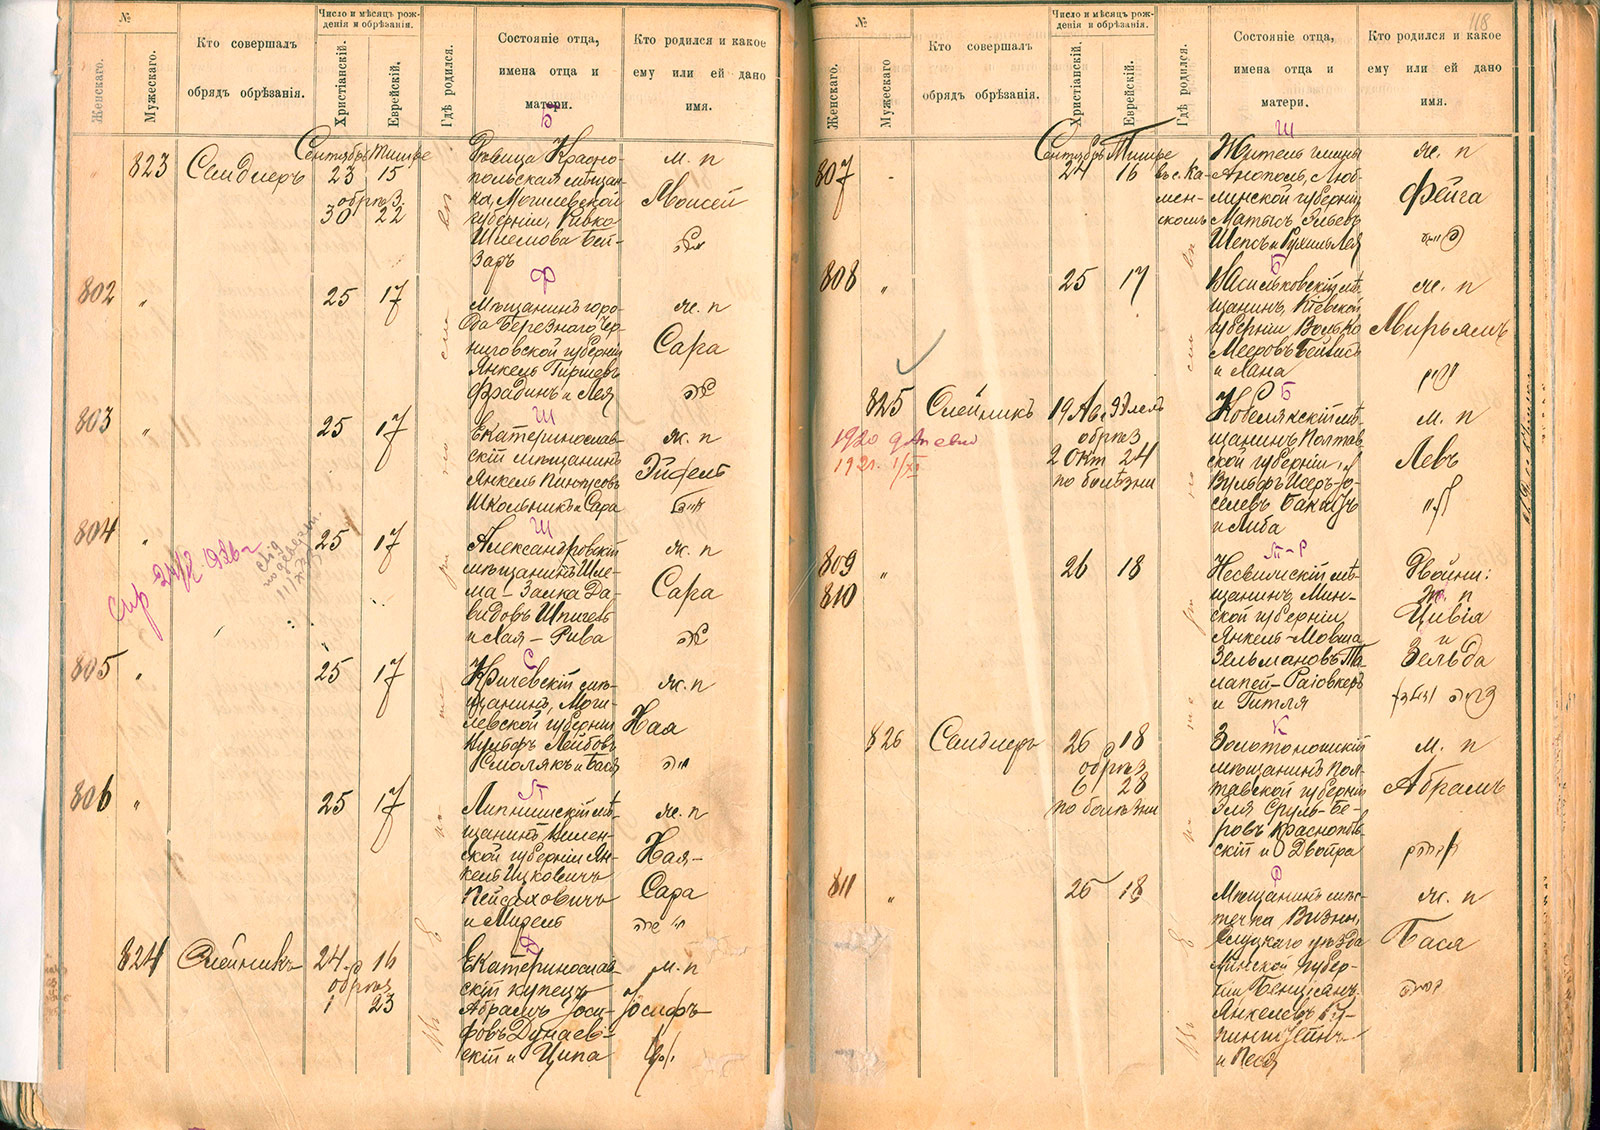 №
Женскаго.
Мужескаго.
Кто совершалъ
обрядъ обрѣзанія.
Число и мѣсяцъ рож-
денія и обрѣзанія.
Христіанскій.
Еврейскій.
Гдѣ родился.
Состояніе отца,
имена отца и
матери.
Кто родился и какое
ему или ей дано
имя.
Б
823
Сандлеръ
Сентябрь Тишре
23 15
обрѣз.
30 22
Девица Красно-
польская мѣщан-
ка, Могилевской
губерніи, Ривка
Шлемова Бей-
заръ
м. п
Моисей
משה
Ф
802
"
25 17
Мѣщанинъ горо-
да Березнаго, Чер-
ниговской губерніи
Янкель Гиршевъ
Фрадинъ и Лея
ж. п
Сара
שרה
Ш
803
"
25 17
Екатеринослав-
скій мѣщанинъ
Янкель Пинхусовъ
Школьникъ и Сара
ж. п
Ш
804
"
25 17
Александровскій
мѣщанинъ Шле-
ма-Залка Да-
видовъ
и Хая-Рива
ж. п
Сара
שרה
С
805
"
25 17
Кричевскій мѣ-
щанинъ, Моги-
левской губерніи
Вульфъ Лейбовъ
Смолякъ и Бася
ж. п
Хая
חיה
П
806
"
25 17
Липнишскій мѣ-
щанинъ Вилен-
ской губерніи Ян-
кель Ицковичъ
Пейсаховичъ
и Мирель
ж. п
Хая-
Сара
חי' שרה
Д
824
Олейникъ
24 16
обрѣз
1 23
Екатеринослав-
скій купецъ
Абрамъ Іоси-
фовъ Дунаев-
скій и Ципа
м. п
Іосифъ
118
№
Женскаго.
Мужескаго
Кто совершалъ
обрядъ обрѣзанія.
Число и мѣсяцъ рож-
денія и обрѣзанія.
Христіанскій.
Еврейскій.
Гдѣ родился.
Состояніе отца,
имена отца и
матери.
Кто родился и какое
ему или ей дано
имя.
Ш
807
"
Сентябрь Тишре
24 16
въ с. Ка-
мен-
скомъ
Житель гмины
Анополь, Люб-
линской губерніи
Матысъ
Шепсъ и Рухиль Лея
ж. п
Фейга
פייגה
Б
808
"
25 17
Васильковскій мѣ-
щанинъ, Кіевской
губерніи Волько
Мееровъ
и Хана
ж. п
Мирьямъ
מרים
Б
825
Олейникъ
19 Ав.
обрѣз
2 Окт 24
по болѣзни
Кобелякскій мѣ-
щанинъ Полтав-
ской губерніи,
Вульфъ
и Либа
м. п
Левъ
1920
1921. 1/XI
Т-Р
809
810
"
26 18
Несвижскій мѣ-
щанинъ Мин-
ской губерніи
Янкель-Мовша
Зельмановъ Та-
лапей-Раговкеръ
и Гитля
Двойни:
ж. п
Цивія
и
Зельда
К
826
Сандлеръ
26 18
обрѣз
6 28
по болѣзни
Золотоношскій
мѣщанинъ Пол-
тавской губерніи
Эля Сруль-Бе-
ровъ Краснопѣв-
скій и Двойра
м. п
Абрамъ
Э
811
"
26 18
Мѣщанинъ мѣс-
течка Визны,
Слуцкаго уѣзда
Минской губер-
ніи
Янкелевъ
и Песя
ж. п
Бася
באסיה